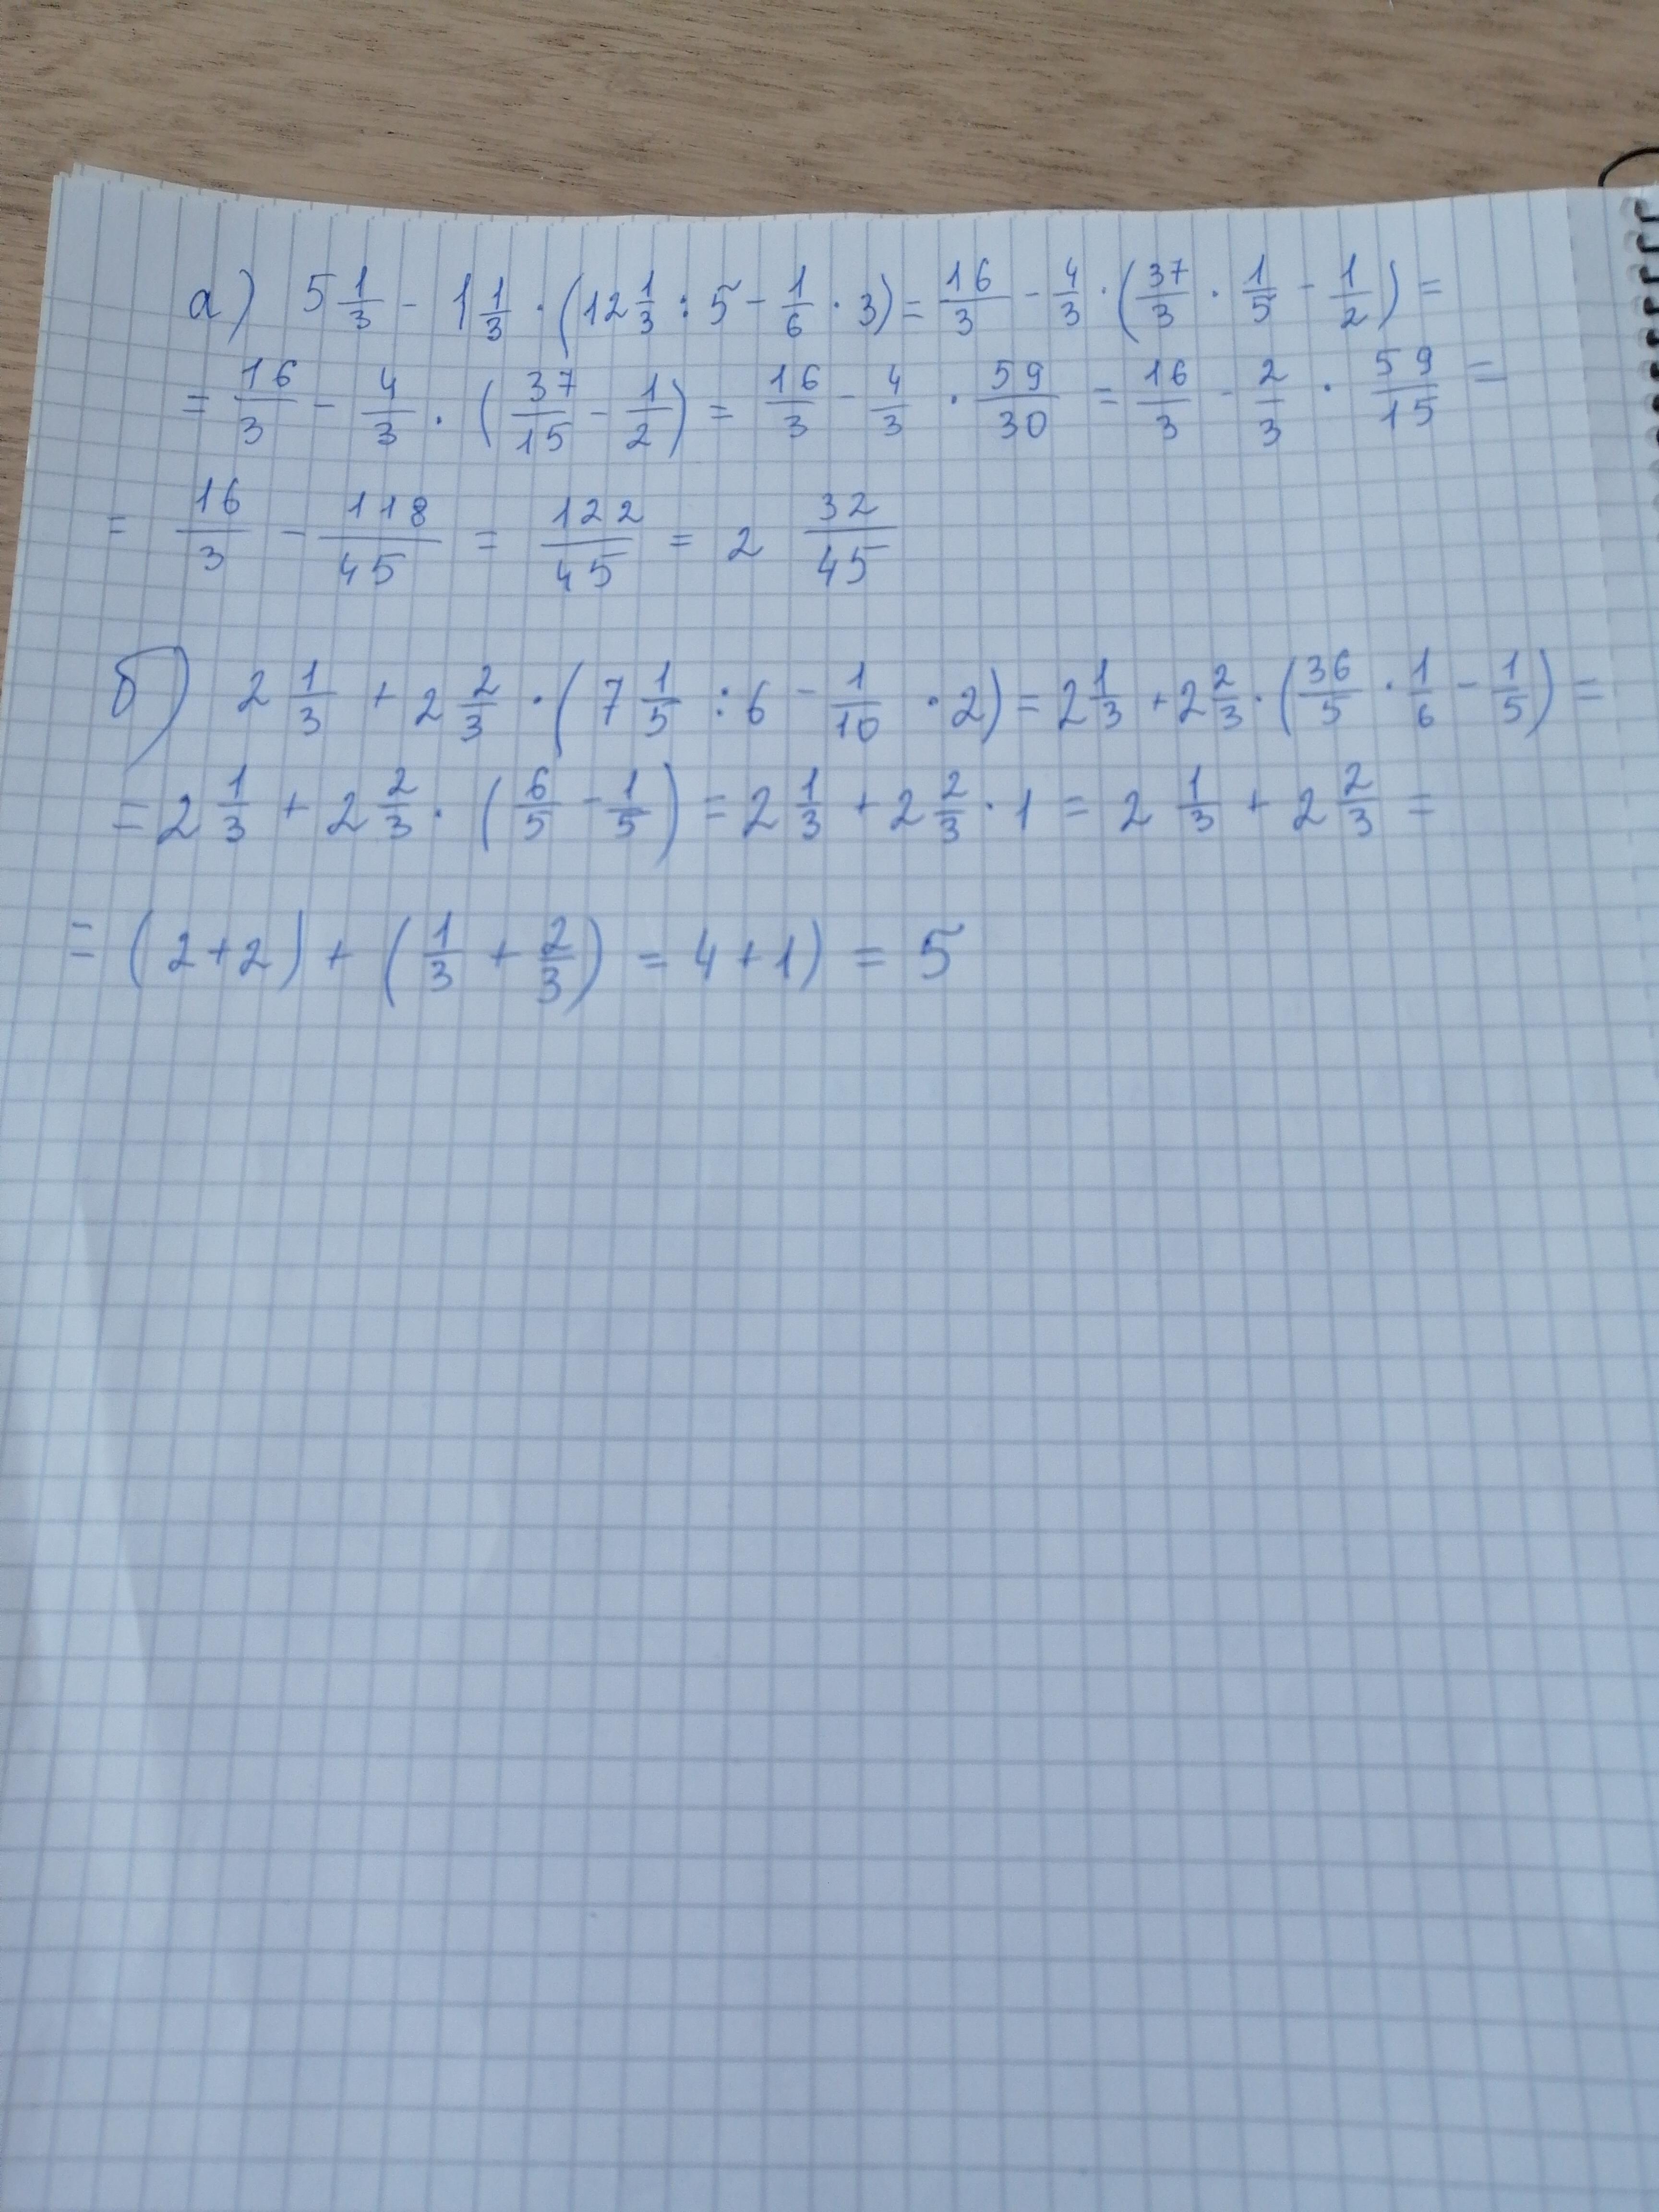 а) 5 1/3 - 1 1/3 · (12 1/3 : 5 - 1/6 · 3) = 16/3 - 4/3 · (37/3 · 1/5 - 1/2) =
= 16/3 - 4/3 · (37/15 - 1/2) = 16/3 - 4/3 · 59/30 = 16/3 - 2/3 · 59/15 =
= 16/3 - 118/45 = 122/45 = 2 32/45
б) 2 1/3 + 2 2/3 · (7 1/5 : 6 - 1/10 · 2) = 2 1/3 + 2 2/3 · (36/5 · 1/6 - 1/5) =
= 2 1/3 + 2 2/3 · (6/5 - 1/5) = 2 1/3 + 2 2/3 · 1 = 2 1/3 + 2 2/3 =
= (2+2) + (1/3 + 2/3) = 4+1) = 5